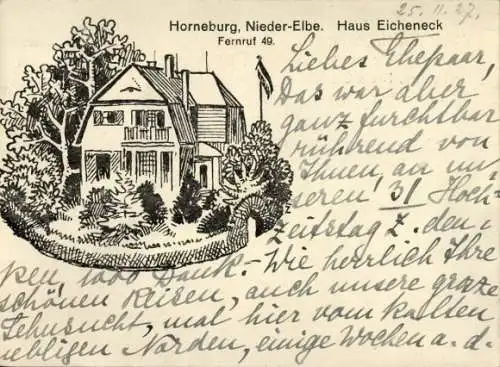 25. 11. 27.
Horneburg, Nieder-Elbe. Haus Eicheneck
Fernruf 49.
Liebes Ehepaar,
Das war aber
ganz furchtbar
rührend von
Ihnen, an un-
seren 31 Hoch-
zeitstag z. den-
ken, 1000 Dank.- Wie herrlich Ihre
schönen Reisen, auch unsere graze
Sehnsucht, mal hier vom kalten
nebligen Norden, einige Wochen a. d.